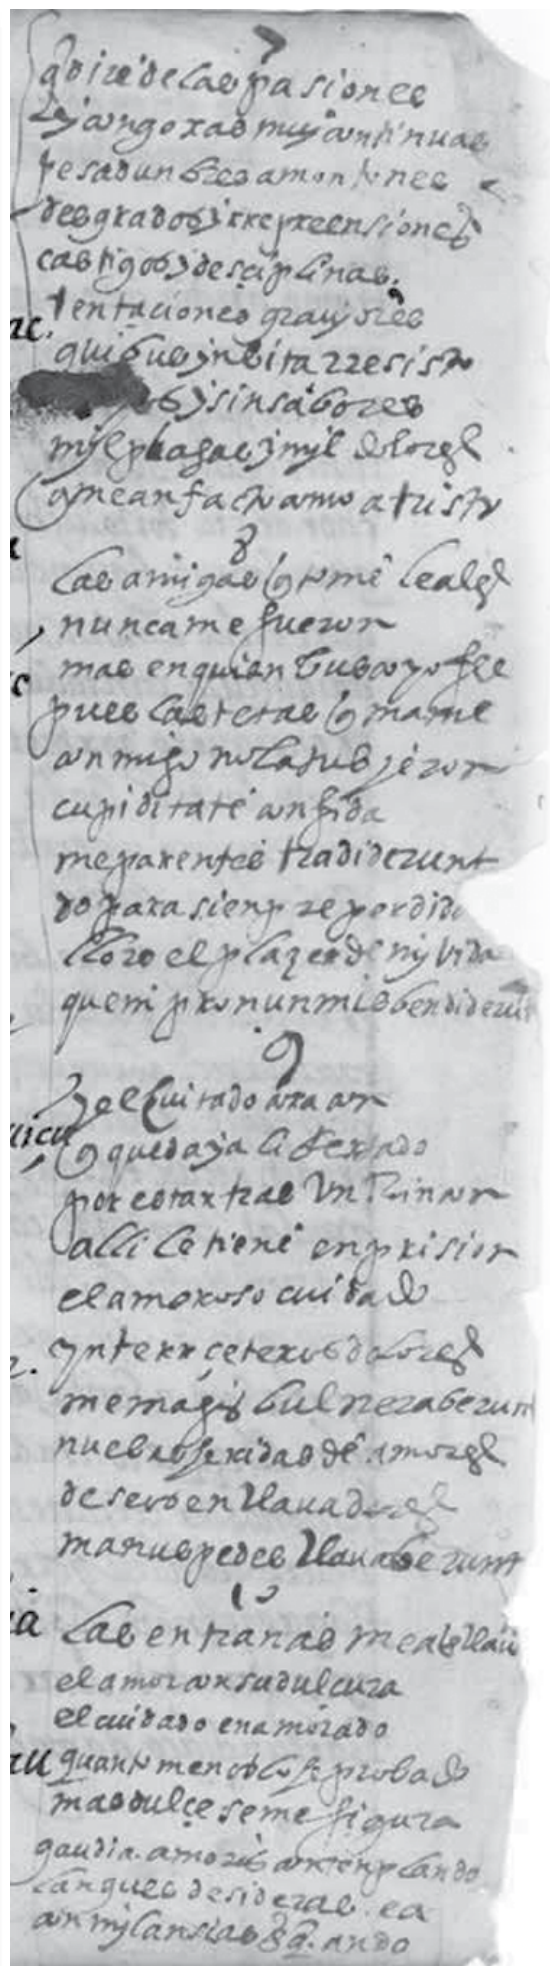 7
q dire de las pasiones
y congoxas muy continuas
pesadunbres a montones
desgrados y rrepreensiones
castigos y desciplinas
tentaciones graviores
quibus ynbita rresisto
y sinsabores
myl plagas y myl dolores
q me an facto amo a tuisto
8
las amigas q tome leales
nunca me fueron
mas en quien tubo yo fee
pues las tetas q mame
conmigo no la tubyeron
cupiditate confida
me parentes tradiderunt
yo para sienpre perdida
lloro el plazer de my vida
quem pro nunmis bendiderunt
9
y el cuitado coraçon
q queda ya
por estar tras un rrincon
alli le tiene en prision
el amoroso cuidado
ynter ceteros dolores
me magis bulneraberunt
nuebas feridas de amores
deseos enclavadores
manus pedes clavaberunt
10
las entrañas me a
el amor con su dulçura
el cuidado enamorado
quanto menos lo he probado
mas dulçe se me figura
gaudia amoris contenplando
langues desideras ea
con mys ansias